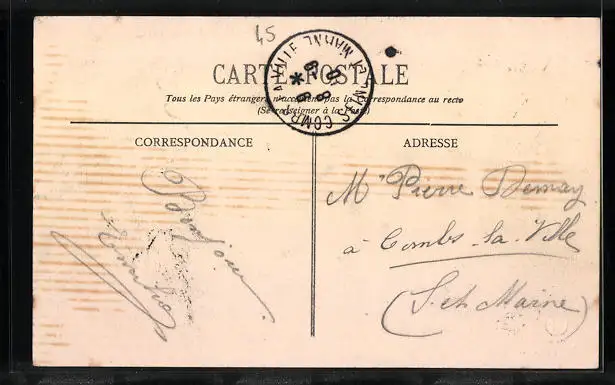 45
CARTE POSTALE
Tous les Pays étrangers n'acceptent pas la Correspondance au recto
(Se renseigner à la Poste)
CORRESPONDANCE
ADRESSE
Bonjour
Mr Pierre
à Combs-la-Ville
(S. et Marne)
COMBS LA VILLE
SEINE ET MARNE